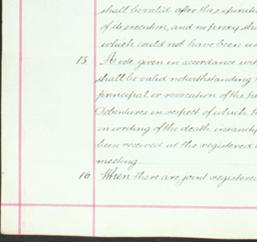 shall be valid after the expiration
of its execution, and no proxy sha
which could not have been us
15 A vote given in accordance wit
shall be valid notwithstanding
principal or revocation of the p
Debentures in respect of which t
in writing of the death insanity
been received at the registered
meeting
16 When there are joint registere